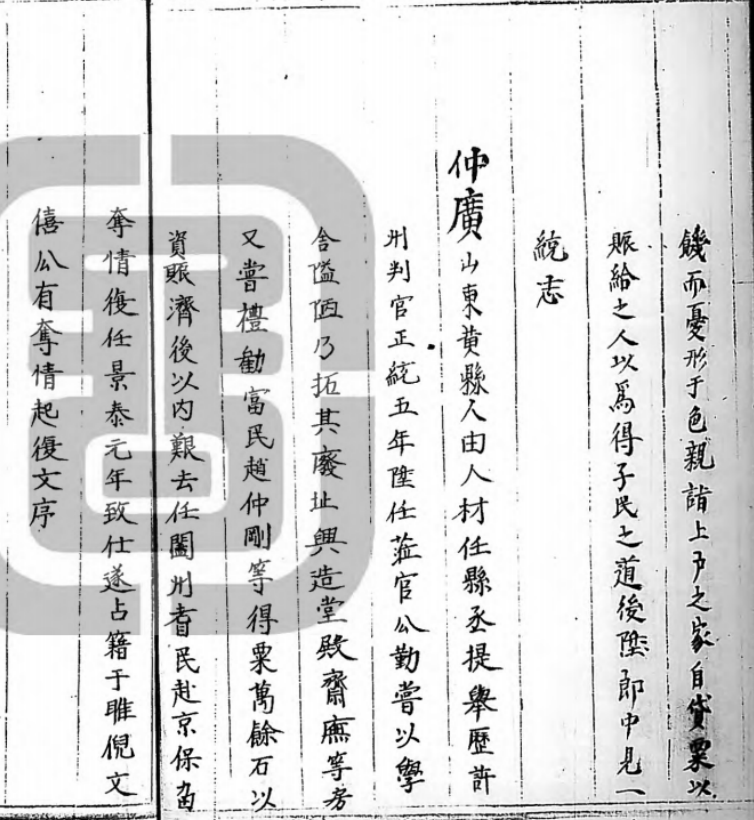 饑而憂形于色親詣上戶之家自貸粟以
賑給之人以爲得子民之道後陞郎中見一
統志
仲廣山東黃縣人由人材任縣丞提舉歷許
州判官正統五年陞任蒞官公勤嘗以學
舍隘陋乃拓其廢址興造堂殿齋廡等房
又嘗禮勸富民趙仲剛等得粟萬餘石以
資賑濟後以內艱去任闔州耆民赴京保留
奪情復任景泰元年致仕遂占籍于睢倪文
僖公有奪情起復文序